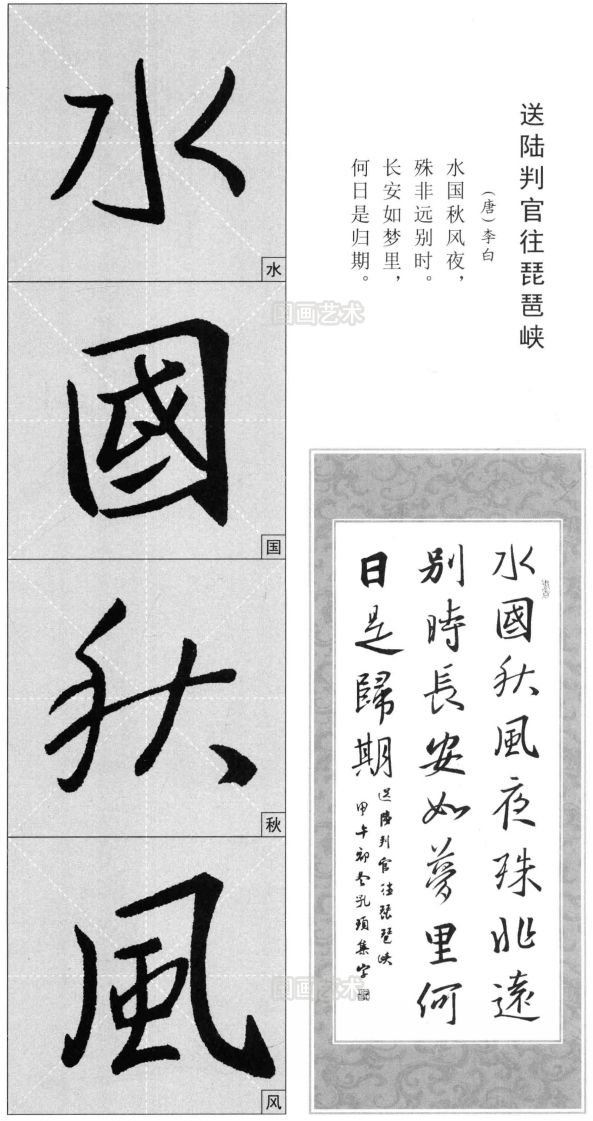 送陆判官往琵琶峡
(唐)李白
水国秋风夜，
殊非远别时。
长安如梦里，
何日是归期。
水
水
國
国
秋
秋
風
风
水國秋風夜殊非遠
別時長安如夢里何
日是歸期
送陸判官往琵琶峽
甲午初冬孔頊集字
国画艺术
国画艺术